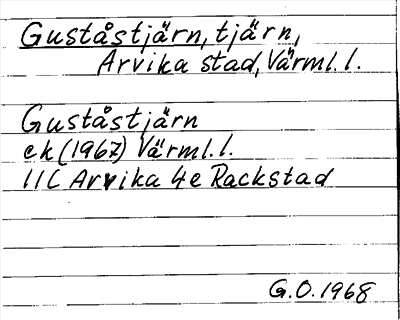 Guståstjärn, tjärn,
Arvika stad, Värml. l.
Guståstjärn
ek (1967) Värml. l.
11C Arvika 4e Rackstad
G.O. 1968